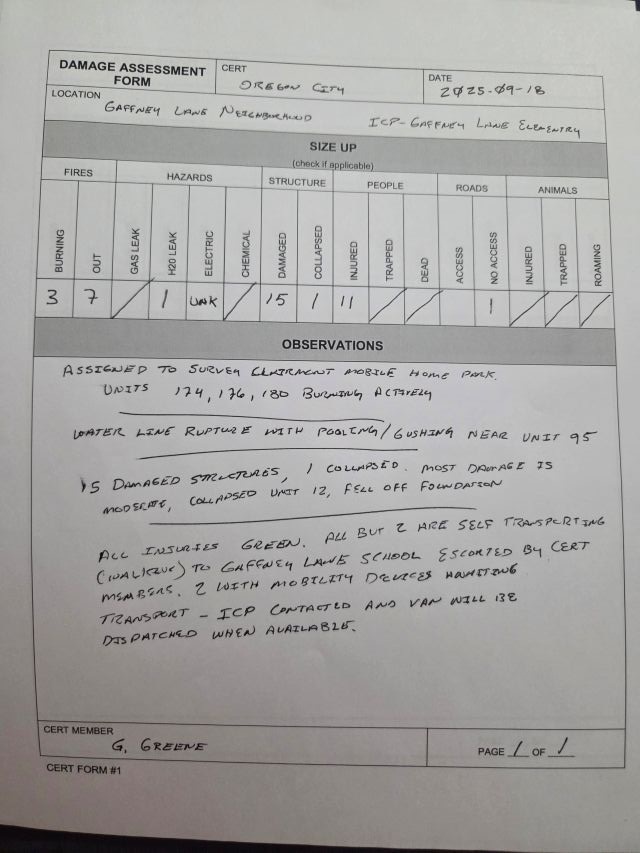 DAMAGE ASSESSMENT FORM
CERT
OREGON CITY
DATE
2025-09-18
LOCATION
GAFFNEY LANE NEIGHBORHOOD ICP-GAFFNEY LANE ELEMENTRY
SIZE UP
(check if applicable)
FIRES HAZARDS STRUCTURE PEOPLE ROADS ANIMALS
BURNING OUT GAS LEAK H20 LEAK ELECTRIC CHEMICAL DAMAGED COLLAPSED INJURED TRAPPED DEAD ACCESS NO ACCESS INJURED TRAPPED ROAMING
3 7 / 1 UNK / 15 1 11 / / 1 / / /
OBSERVATIONS
ASSIGNED TO SURVEY CLAIRMONT MOBILE HOME PARK.
UNITS 174, 176, 180 BURNING ACTIVELY
WATER LINE RUPTURE WITH POOLING/GUSHING NEAR UNIT 95
15 DAMAGED STRUCTURES, 1 COLLAPSED. MOST DAMAGE IS
MODERATE, COLLAPSED UNIT 12, FELL OFF FOUNDATION
ALL INJURIES GREEN. ALL BUT 2 ARE SELF TRANSPORTING
TO GAFFNEY LANE SCHOOL ESCORTED BY CERT
MEMBERS. 2 WITH MOBILITY DEVICES AWAITING
TRANSPORT - ICP CONTACTED AND VAN WILL BE
DISPATCHED WHEN AVAILABLE.
CERT MEMBER
G. GREENE
PAGE 1 OF 1
CERT FORM #1